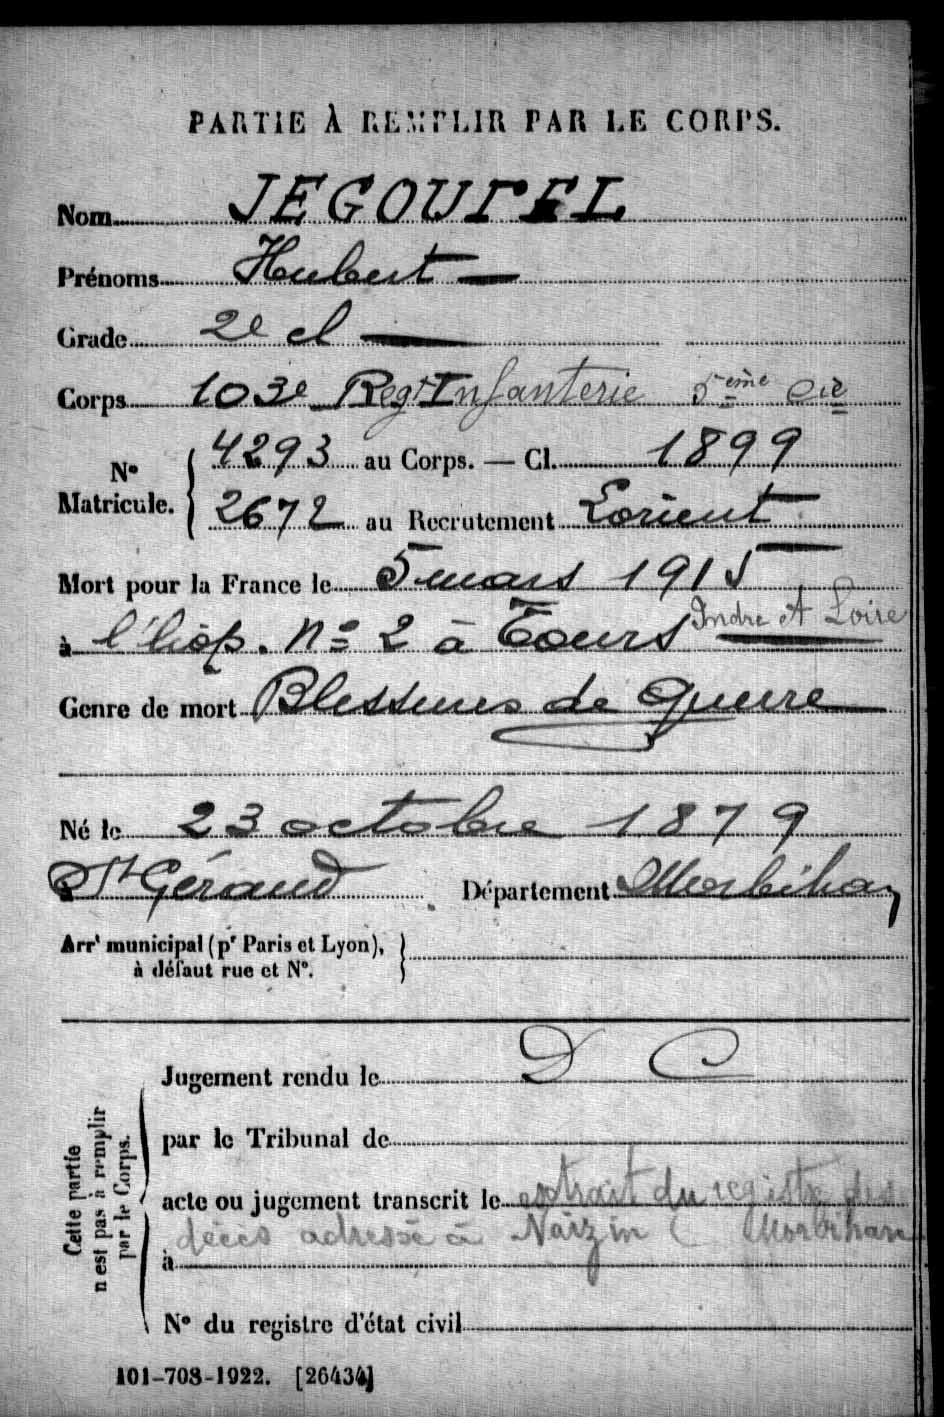 PARTIE À REMPLIR PAR LE CORPS.
Nom JEGOUREL
Prénoms Hubert
Grade 2e cl
Corps 103e Regt Infanterie 5ème Cie
N° Matricule. { 4293 au Corps. — Cl. 1899
2672 au Recrutement Lorient
Mort pour la France le 5 mars 1915
à l'hôp. n° 2 à Tours Indre et Loire
Genre de mort Blessures de Guerre
Né le 23 octobre 1879
à St Gérand Département Morbihan
Arrt municipal (pr Paris et Lyon),
à défaut rue et N°.
Jugement rendu le D C
par le Tribunal de
acte ou jugement transcrit le extrait du registre des
décès adressé à Naizin (Morbihan
à
N° du registre d'état civil
Cette partie
n est pas à remplir
par le Corps.
101-708-1922. [26434]